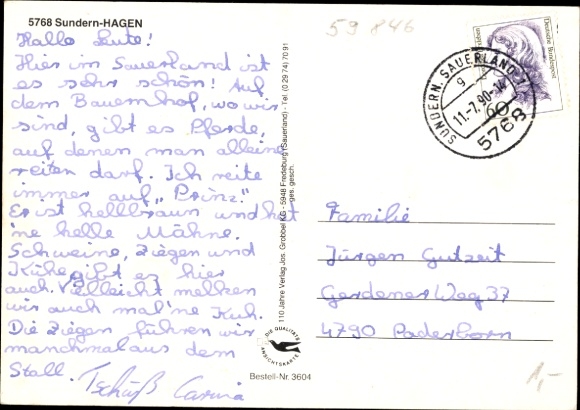 5768 Sundern-HAGEN
Hallo Leute!
Hier im Sauerland ist
es sehr schön! Auf
dem Bauernhof, wo wir
sind, gibt es Pferde,
auf denen man alleine
reiten darf. Ich reite
immer auf „Prinz."
Er ist hellbraun und hat
'ne helle Mähne.
Schweine, Ziegen und
Kühe gibt es hier
auch. Vielleicht melken
wir auch mal 'ne Kuh.
Die Ziegen führen wir
manchmal aus dem
Stall. Tschüß Carina
110 Jahre Verlag Jos. Grobbel KG - 5948 Fredeburg (Sauerland) - Tel. (0 29 74) 70 91
ges. gesch.
DIE QUALITÄTS
ANSICHTSKARTE
Bestell-Nr. 3604
59 846
Deutsche Bundespost
60
SUNDERN, SAUERLAND 1
g
11.-7.90-14
5768
Familie
Jürgen Gutzeit
Gerdener Weg 37
4790 Paderborn
1,-